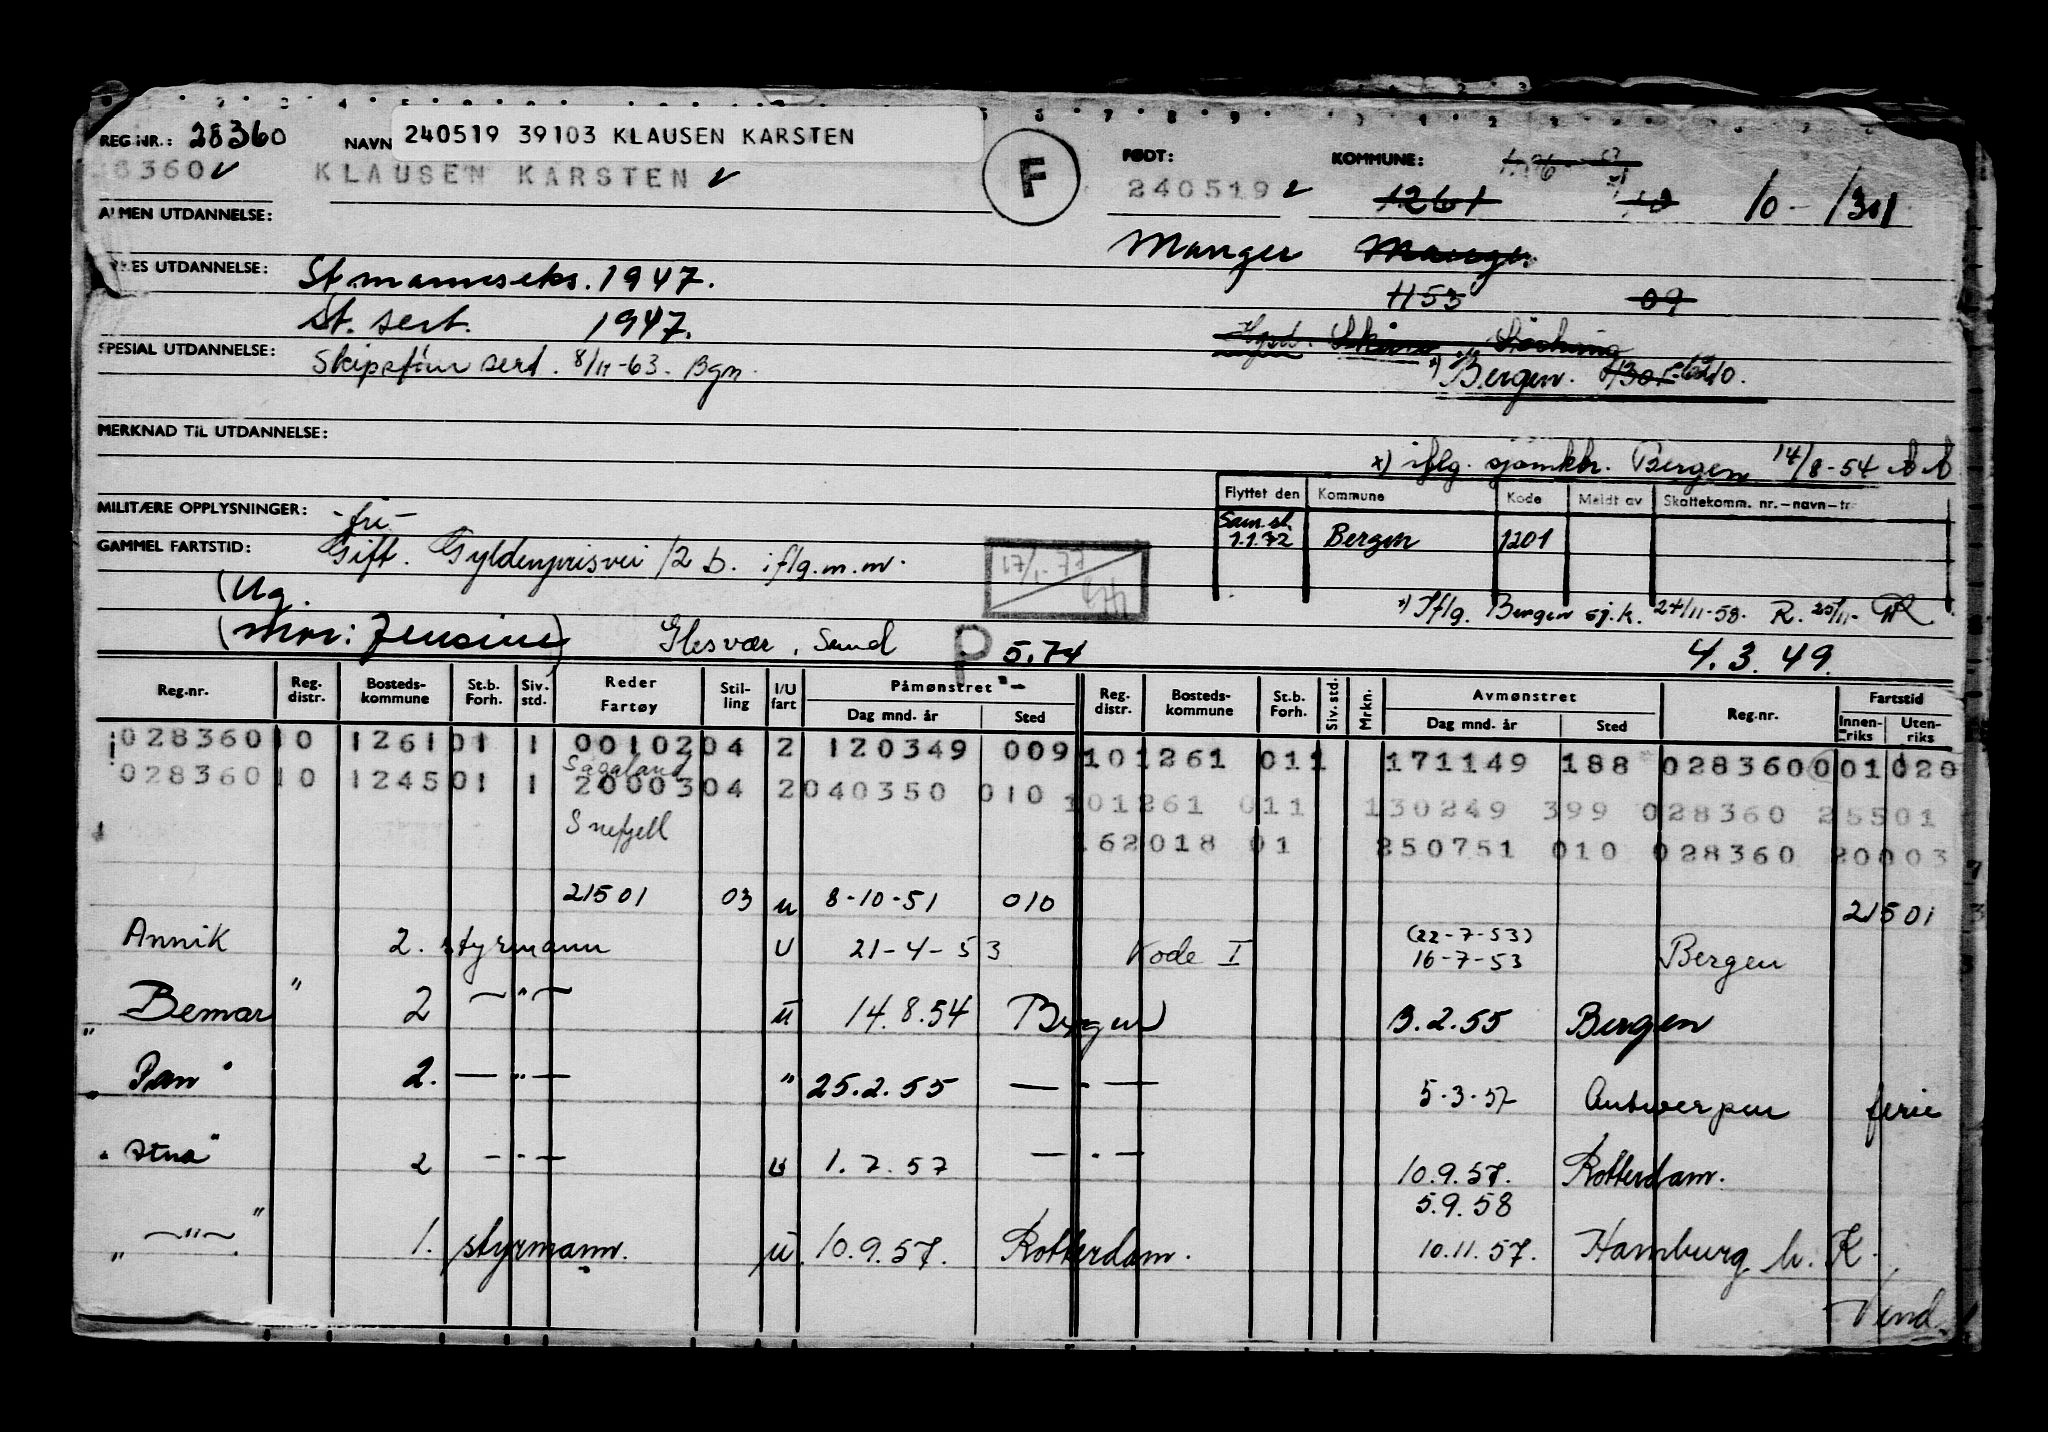 REG.NR.: 28360 NAVN 240519 39103 KLAUSEN KARSTEN
F
FØDT: KOMMUNE:
8360 KLAUSEN KARSTEN 240519 1261 10 - 1301
ALMEN UTDANNELSE:
Manger Manger
UTDANNELSE: St manns eks. 1947.
1153 09
St. sert. 1947.
SPESIAL UTDANNELSE: Skipsfør sert. 8/11-63. Bgn.
x) Bergen. 1301 10.
MERKNAD TIL UTDANNELSE:
x) iflg. sjømktr. Bergen 14/8-54
Flyttet den Kommune Kode Meldt av Skattekomm. nr.-navn-tr
MILITÆRE OPPLYSNINGER: -fri-
Sam.sl. 1.1.72 Bergen 1201
GAMMEL FARTSTID: Gift. Gyldenprisvei 12 b. iflg. m.m.
17/1-77
(Ug.
x) Iflg. Bergen sj.k. 24/11-58. R. 25/11-
(Mor: Jensine) Glesvær, Sund P 5.74 4.3.49.
Reg.nr. Reg. distr. Bosteds-kommune St.b. Forh. Siv. std. Reder Fartøy Stil-ling I/U fart Påmønstret Dag mnd. år Sted Reg. distr. Bosteds-kommune St.b. Forh. Siv. std. Mrkn. Avmønstret Dag mnd. år Sted Reg.nr. Fartstid Innen-riks Uten-riks
028360 10 1261 01 1 00102 04 2 120349 009 101261 011 171149 188 028360 0 01 020
Sagaland
028360 10 1245 01 1 20003 04 2 040350 010 101261 011 130249 399 028360 25501
Snefjell
162018 01 250751 010 028360 20003
21501 03 u 8-10-51 010 21501
Annik 2. styrmann U 21-4-53 Kode I (22-7-53) 16-7-53 Bergen
" Bemar " 2 —"— u 14.8.54 Bergen 3.2.55 Bergen
" Pan " 2. —"— " 25.2.55 —"— 5-3-57 Antwerpen ferie
" Stua " 2 —"— u 1.7.57 —"— 10.9.57. Rotterdam.
5.9.58
" —"— " 1. styrmann. u. 10.9.57. Rotterdam. 10.11.57. Hamburg h. K.
Vend.